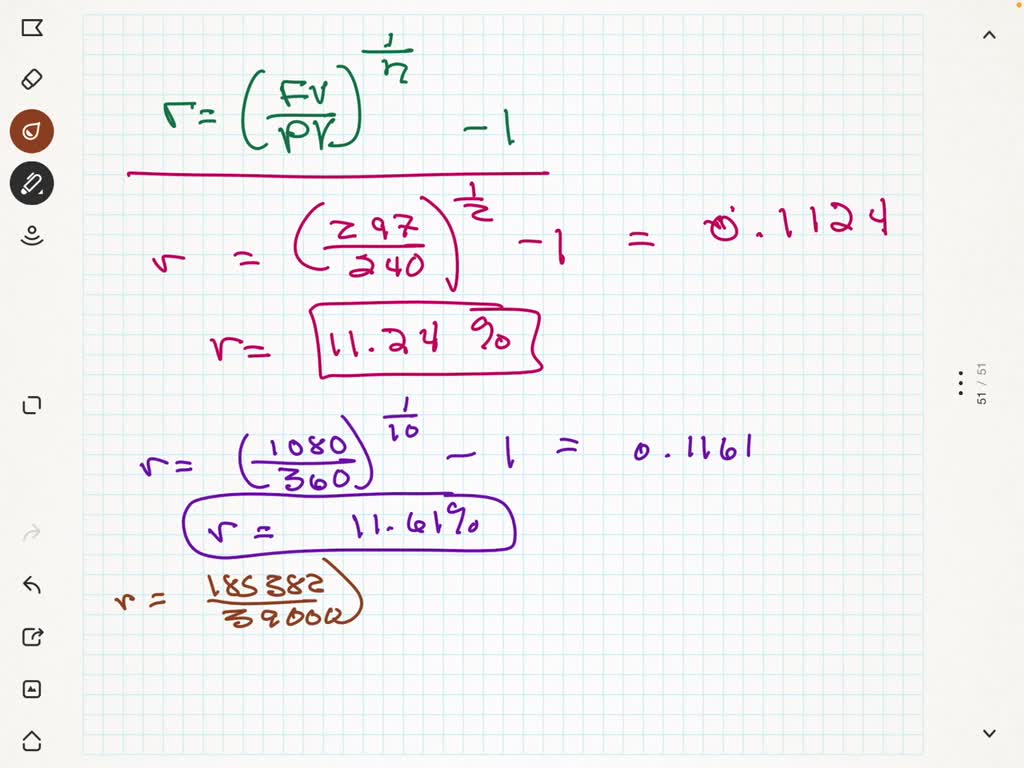 r = (FV/PV)^(1/n) - 1
r = (297/240)^(1/2) - 1 = 0.1124
r = 11.24 %
r = (1080/360)^(1/10) - 1 = 0.1161
r = 11.61%
r = 185382/39000)
51 / 51